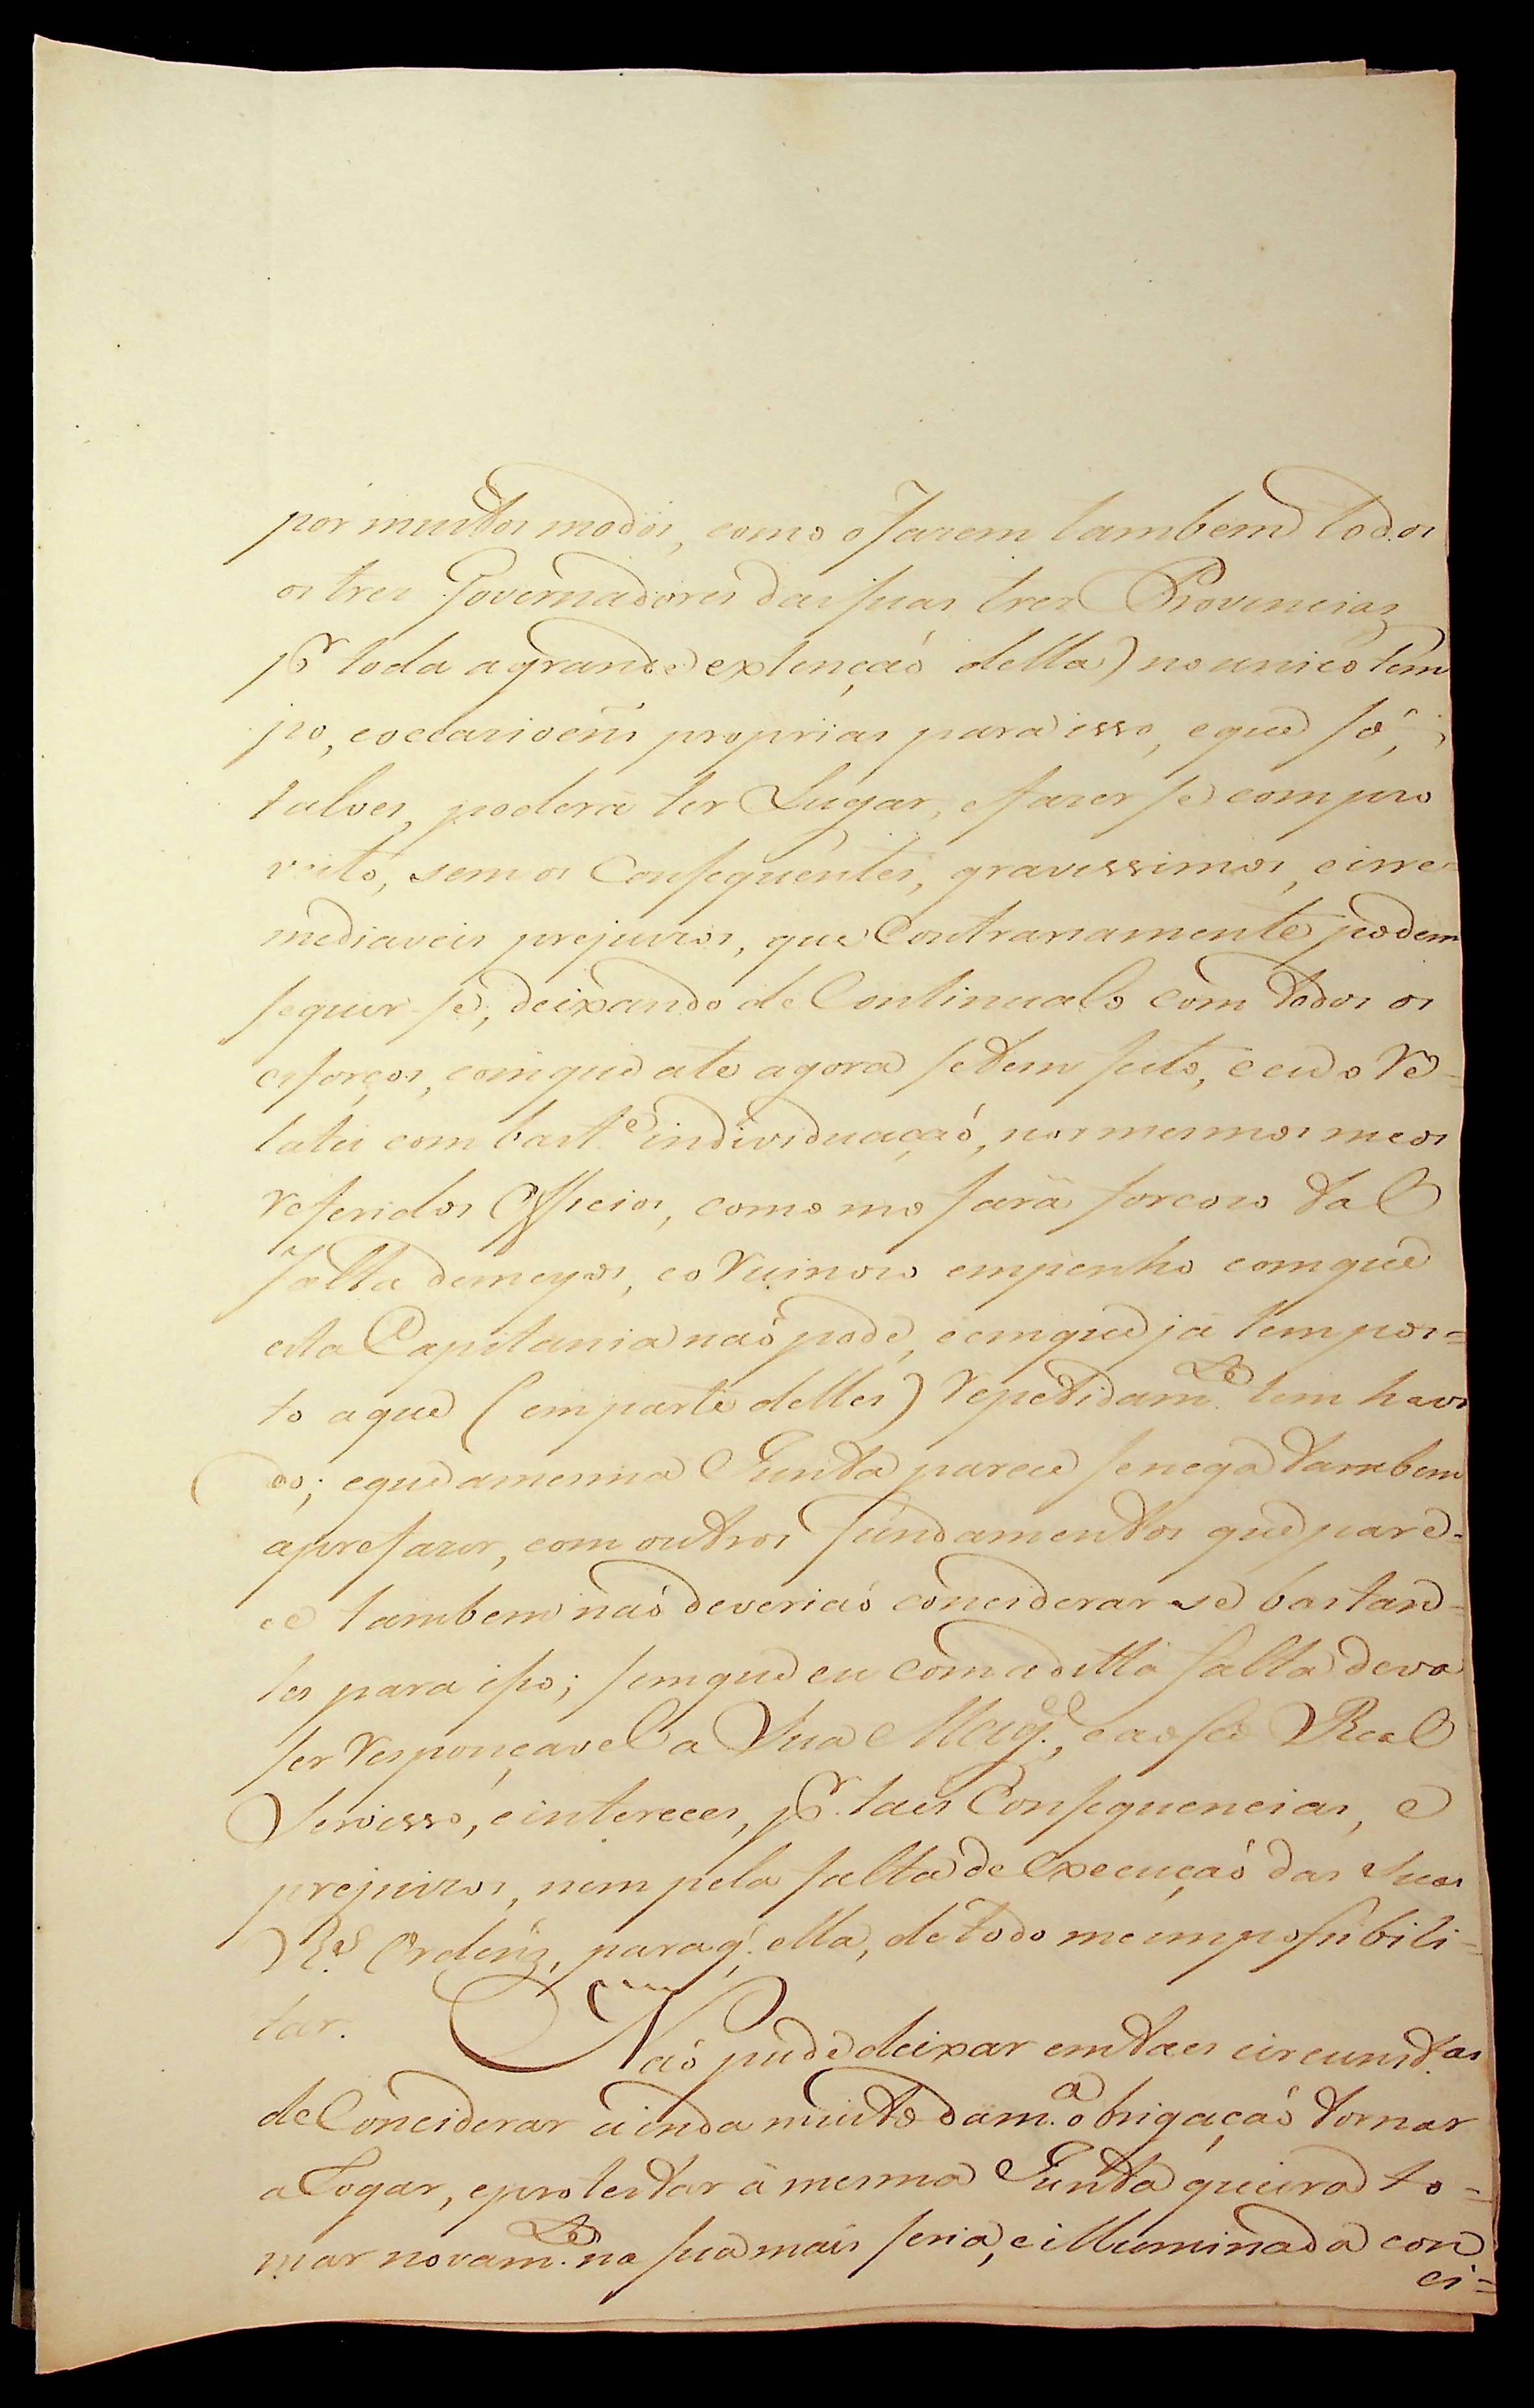 por muitos modos, como o fazem tambem todos
os tres Governadores das suas tres Provincias
pr toda a grande extençaó della) no unico tem
po, e occazioens proprias para isso, e que só,
talves, poderá ter Lugar, e fazer se com pro
veito, sem os Consequentes, gravissimos, e irre-
mediaveis prejuizos, que Contrariamente podem
seguir-se, deixando de Continualo com todos os
esforços, com que ate agora se tem feito, e eu o Re-
latei com bast.e individuaçaó, nos mesmos meos
referidos Officios, como mo fará forcozo tal
falta de meyos, e o Ruinozo empenho com que
esta Capitania naõ pode, e em que já tem pos=
to a que (em parte delles) repetidam.te tem havi
do; e que a mesma Junta parece se nega tambem
aprefazer, com outros fundamentos que pare=
ce tambem naó deveriaó conciderar se bastan=
tes para isso; sem que eu com a ditta falta deva
ser responçavel a Sua Mag.de, e ao seo Real
Servisso, e intereces, pr. taes Consequencias, e
prejuizos, nem pela falta de Execuçaó das Suas
R.s Ordens, para q. ella, de todo me impossibili=
tar. Naó pude deixar em taes circunst.as
de Conciderar ainda muito da m.a obrigaçaó tornar
a Rogar, e protestar á mesma Junta queira to=
mar novam.te na sua mais seria, e illuminada con
ci=